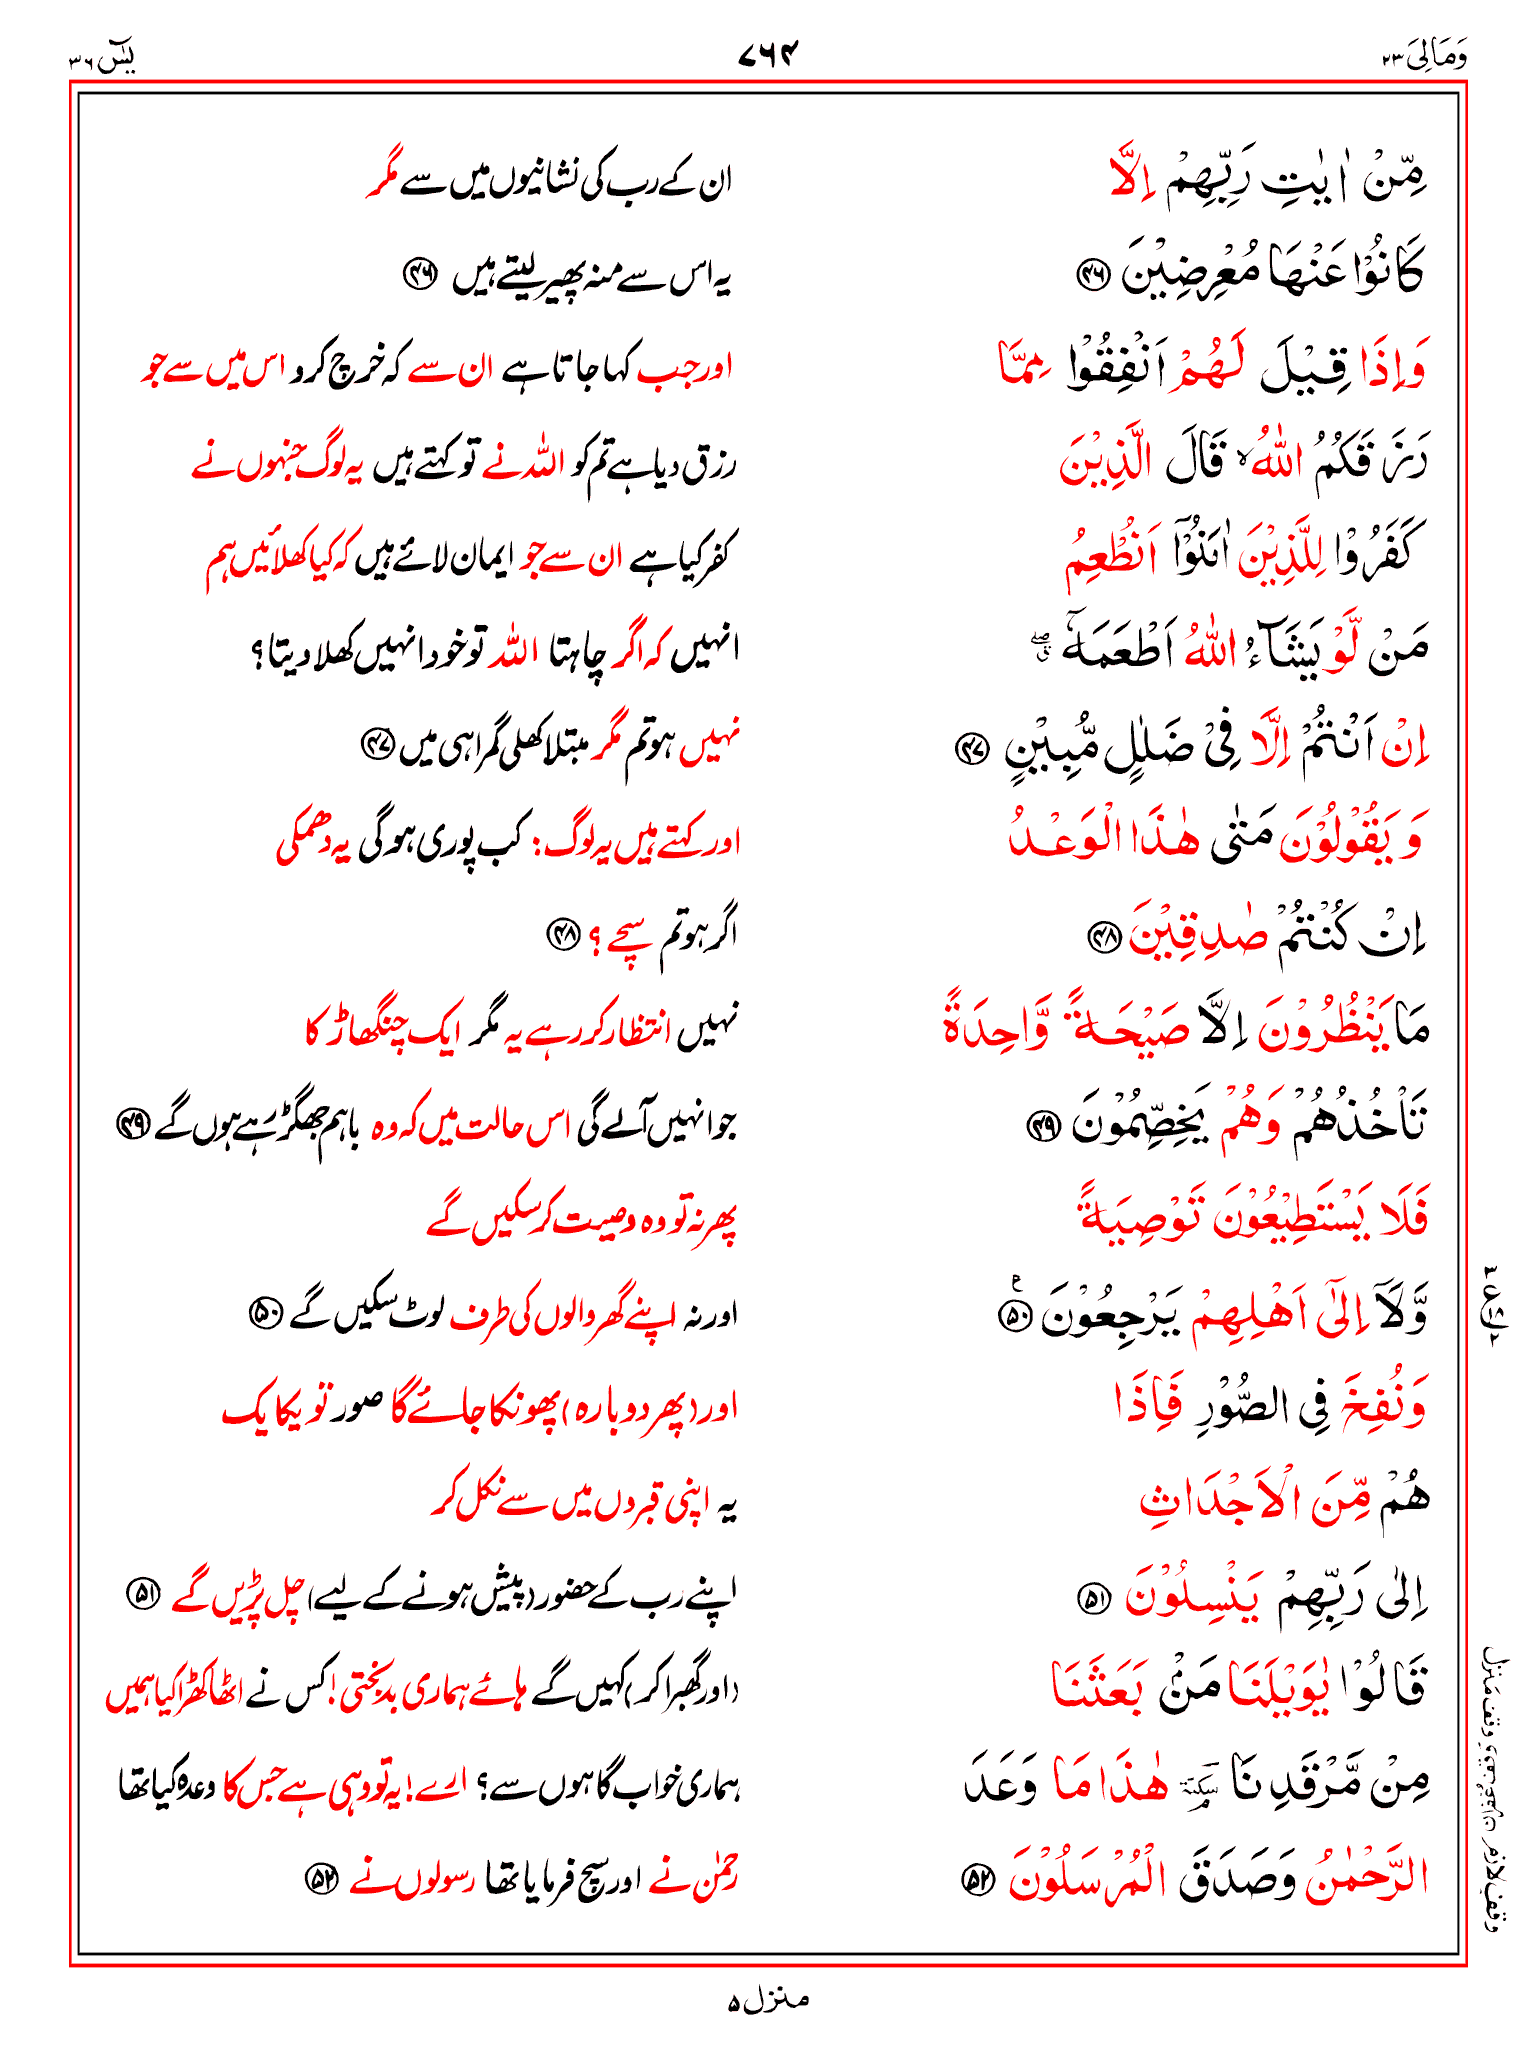 وَمَالِیَ ۲۳
۷۶۴
یٰسٓ ۳۶
مِّنْ اٰیٰتِ رَبِّهِمْ اِلَّا
ان کے رب کی نشانیوں میں سے مگر
كَانُوْا عَنْهَا مُعْرِضِیْنَ ﴿۴۶﴾
یہ اس سے منہ پھیر لیتے ہیں ﴿۴۶﴾
وَاِذَا قِیْلَ لَهُمْ اَنْفِقُوْا مِمَّا
اور جب کہا جاتا ہے ان سے کہ خرچ کرو اس میں سے جو
رَزَقَكُمُ اللّٰهُ ۙ قَالَ الَّذِیْنَ
رزق دیا ہے تم کو اللہ نے تو کہتے ہیں یہ لوگ جنہوں نے
كَفَرُوْا لِلَّذِیْنَ اٰمَنُوْۤا اَنُطْعِمُ
کفر کیا ہے ان سے جو ایمان لائے ہیں کہ کیا کھلائیں ہم
مَنْ لَّوْ یَشَآءُ اللّٰهُ اَطْعَمَهٗۤ ۖق
انہیں کہ اگر چاہتا اللہ تو خود انہیں کھلا دیتا؟
اِنْ اَنْتُمْ اِلَّا فِیْ ضَلٰلٍ مُّبِیْنٍ ﴿۴۷﴾
نہیں ہو تم مگر مبتلا کھلی گمراہی میں ﴿۴۷﴾
وَیَقُوْلُوْنَ مَتٰی هٰذَا الْوَعْدُ
اور کہتے ہیں یہ لوگ: کب پوری ہو گی یہ دھمکی
اِنْ كُنْتُمْ صٰدِقِیْنَ ﴿۴۸﴾
اگر ہو تم سچے؟ ﴿۴۸﴾
مَا یَنْظُرُوْنَ اِلَّا صَیْحَةً وَّاحِدَةً
نہیں انتظار کر رہے یہ مگر ایک چنگھاڑ کا
تَاْخُذُهُمْ وَهُمْ یَخِصِّمُوْنَ ﴿۴۹﴾
جو انہیں آلے گی اس حالت میں کہ وہ باہم جھگڑ رہے ہوں گے ﴿۴۹﴾
فَلَا یَسْتَطِیْعُوْنَ تَوْصِیَةً
پھر نہ تو وہ وصیت کر سکیں گے
وَّلَاۤ اِلٰۤی اَهْلِهِمْ یَرْجِعُوْنَ ﴿۵۰﴾ ع
اور نہ اپنے گھر والوں کی طرف لوٹ سکیں گے ﴿۵۰﴾
وَنُفِخَ فِی الصُّوْرِ فَاِذَا
اور (پھر دوبارہ) پھونکا جائے گا صور تو یکایک
هُمْ مِّنَ الْاَجْدَاثِ
یہ اپنی قبروں میں سے نکل کر
اِلٰی رَبِّهِمْ یَنْسِلُوْنَ ﴿۵۱﴾
اپنے رب کے حضور (پیش ہونے کے لیے) چل پڑیں گے ﴿۵۱﴾
قَالُوْا یٰوَیْلَنَا مَنْۢ بَعَثَنَا
(اور گھبرا کر) کہیں گے ہائے ہماری بدبختی! کس نے اٹھا کھڑا کیا ہمیں
مِنْ مَّرْقَدِنَا سكتة هٰذَا مَا وَعَدَ
ہماری خواب گاہوں سے؟ ارے! یہ تو وہی ہے جس کا وعدہ کیا تھا
الرَّحْمٰنُ وَصَدَقَ الْمُرْسَلُوْنَ ﴿۵۲﴾
رحمٰن نے اور سچ فرمایا تھا رسولوں نے ﴿۵۲﴾
منزل ۵